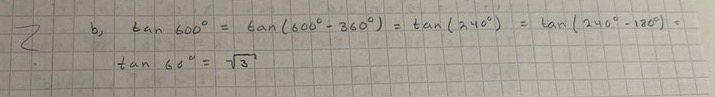 2 b, tan 600° = tan(600° - 360°) = tan(240°) = tan(240° - 180°) =
tan 60° = √3